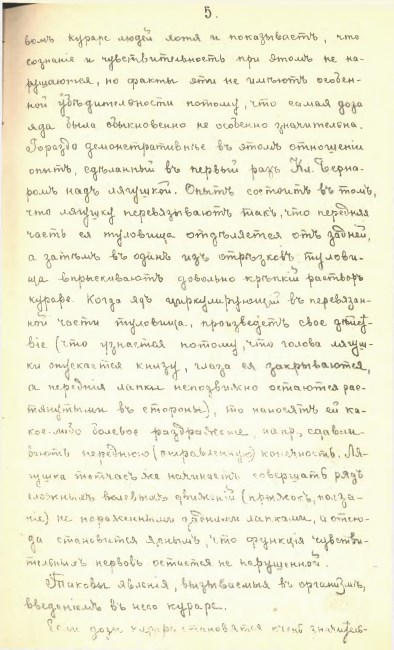 5.
вомъ кураре людей хотя и показываетъ, что
сознаніе и чувствительность при этомъ не на-
рушаются, но факты эти не имѣютъ особен-
ной убѣдительности потому, что самая доза
яда была обыкновенно не особенно значительна.
Гораздо демонстративнѣе въ этомъ отношеніи
опытъ, сдѣланный въ первый разъ Кл. Берна-
ромъ надъ лягушкой. Опытъ состоитъ въ томъ,
что лягушку перевязываютъ такъ, что передняя
часть ея туловища отдѣляется отъ задней,
а затѣмъ въ одинъ изъ отрѣзковъ тулови-
ща впрыскиваютъ довольно крѣпкій растворъ
кураре. Когда ядъ циркулирующій въ перевязан-
ной части туловища, произведетъ свое дѣйст-
віе (что узнается потому, что голова лягуш-
ки опускается книзу, глаза ея закрываются,
а переднія лапки неподвижно остаются рас-
тянутыми въ стороны), то наносятъ ей ка-
кое-либо болевое раздраженіе, напр., сдавли-
ваютъ переднюю (отравленную) конечность. Ля-
гушка тотчасъ же начинаетъ совершать рядъ
сложныхъ волевыхъ движеній (прыжокъ, полза-
ніе) не пораженными задними лапками, и отсю-
да становится яснымъ, что функція чувстви-
тельныхъ нервовъ остается не нарушенной.
Таковы явленія, вызываемыя въ организмѣ,
введеніемъ въ него кураре.
Если дозы кураре становятся очень значитель-